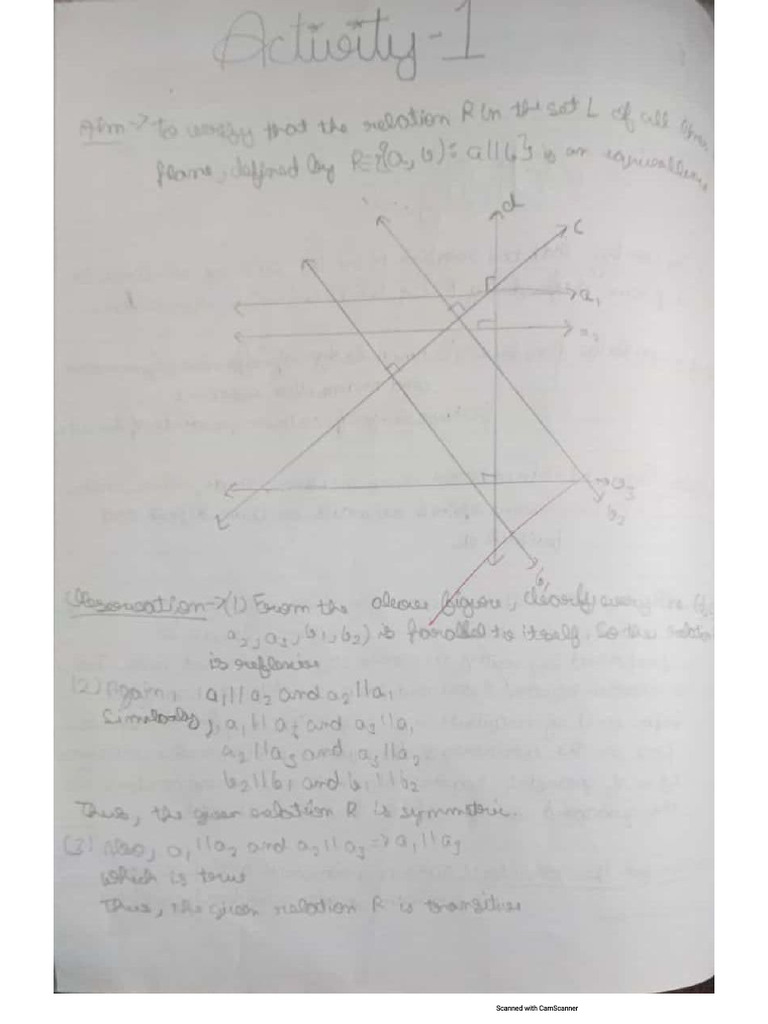 Activity-1
Aim → To verify that the relation R in the set L of all lines
plane, defined by R={(a, b): a||b} is an equivalence
d
c
a1
a2
a3
b2
b1
Observation → (1) From the above figure, clearly every line (a1
a2, a3, b1, b2) is parallel to itself. So the relation
is reflexive
(2) Again, a1 || a2 and a2 || a1
Similarly, a1 || a3 and a3 || a1
a2 || a3 and a3 || a2
b2 || b1 and b1 || b2
Thus, the given relation R is symmetric.
(3) Also, a1 || a2 and a2 || a3 => a1 || a3
which is true
Thus, the given relation R is transitive
Scanned with CamScanner